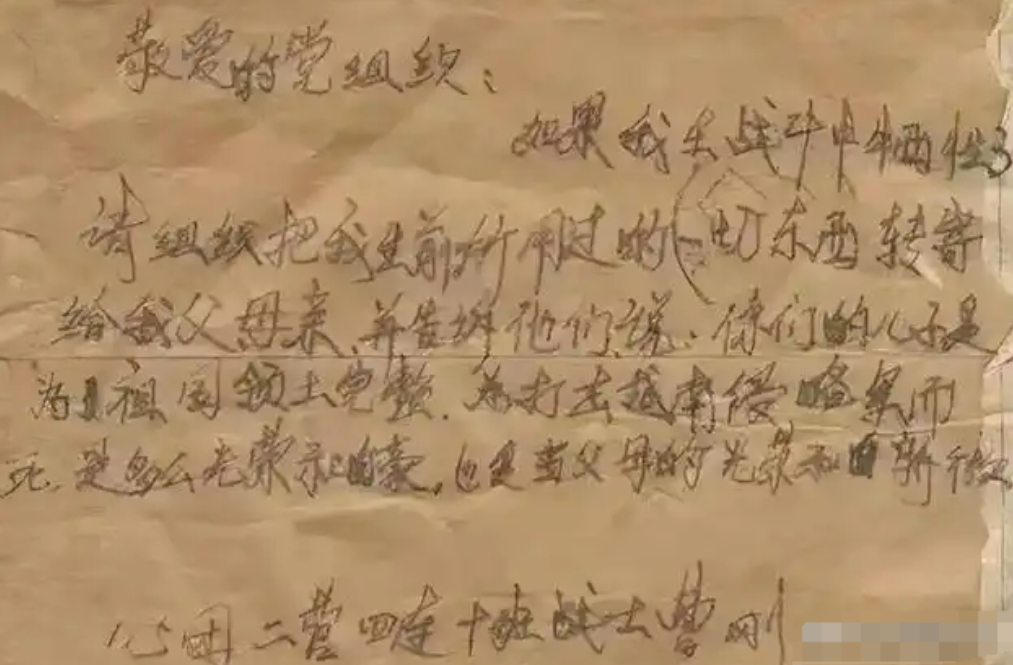 敬爱的党组织:
如果我在战斗中牺牲了
请组织把我生前所用过的一切东西转寄
给我父母亲、并告诉他们说、你们的儿子是
为祖国领土完整、为打击越南侵略军而
死、是多么光荣和自豪、也是当父母的光荣和骄傲
125团二营四连十班战士曹刚